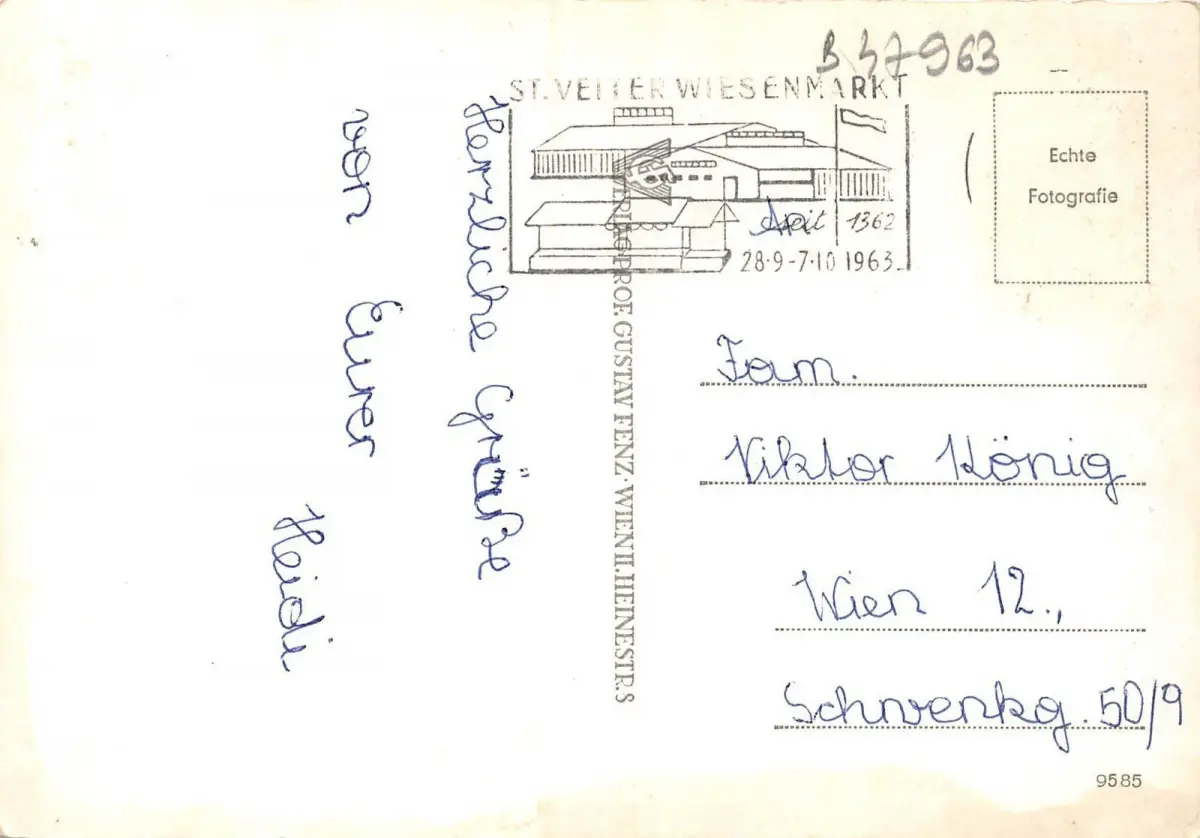 B 37963
ST. VEITER WIESENMARKT
seit 1362
28·9-7·10 1963
Echte
Fotografie
Herzliche Grüße
von Eurer
Heidi
VERLAG PROF. GUSTAV FENZ · WIEN II. HEINESTR. 8
Fam.
Viktor König
Wien 12.,
Schwenkg. 50/9
9585